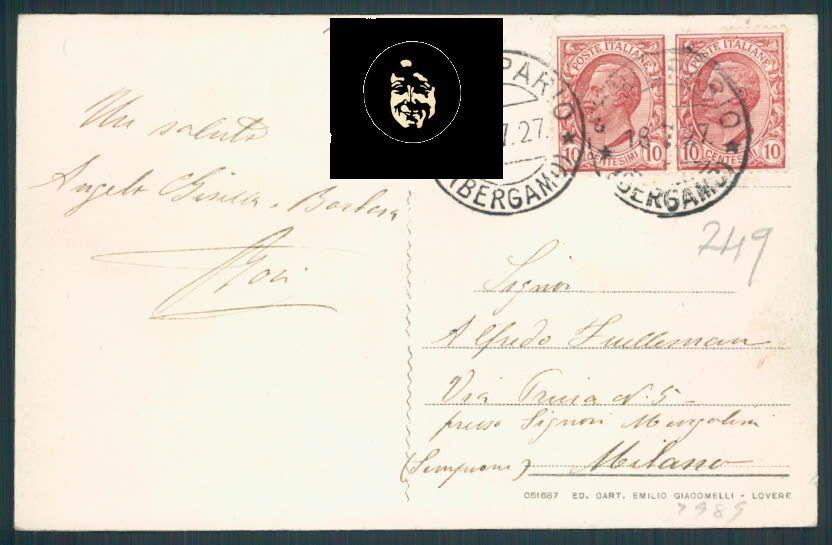 Un saluto
Angelo
Barbara
PARIO
7.27.
(BERGAMO)
POSTE ITALIANE
10 CENTESIMI 10
POSTE ITALIANE
10 CENTESIMI 10
18
27
(BERGAMO)
249
Signor
Alfredo
Via N. 5-
presso Signori
(Sempione) Milano
051687 ED. CART. EMILIO GIACOMELLI - LOVERE
7989